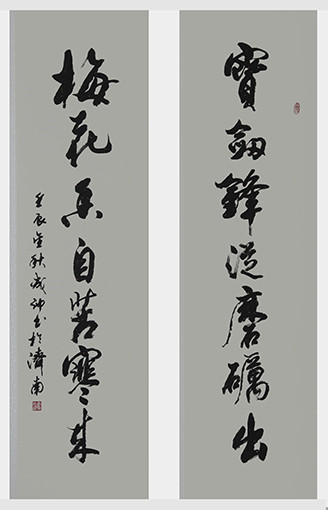 寶劔鋒從磨礪出
梅花香自苦寒來
壬辰金秋成坤書於濟南